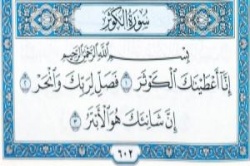 سُورَةُ الكَوْثَر
بِسْمِ اللَّهِ الرَّحْمَٰنِ الرَّحِيمِ
إِنَّا أَعْطَيْنَاكَ الْكَوْثَرَ ١ فَصَلِّ لِرَبِّكَ وَانْحَرْ ٢
إِنَّ شَانِئَكَ هُوَ الْأَبْتَرُ ٣
٦٠٢